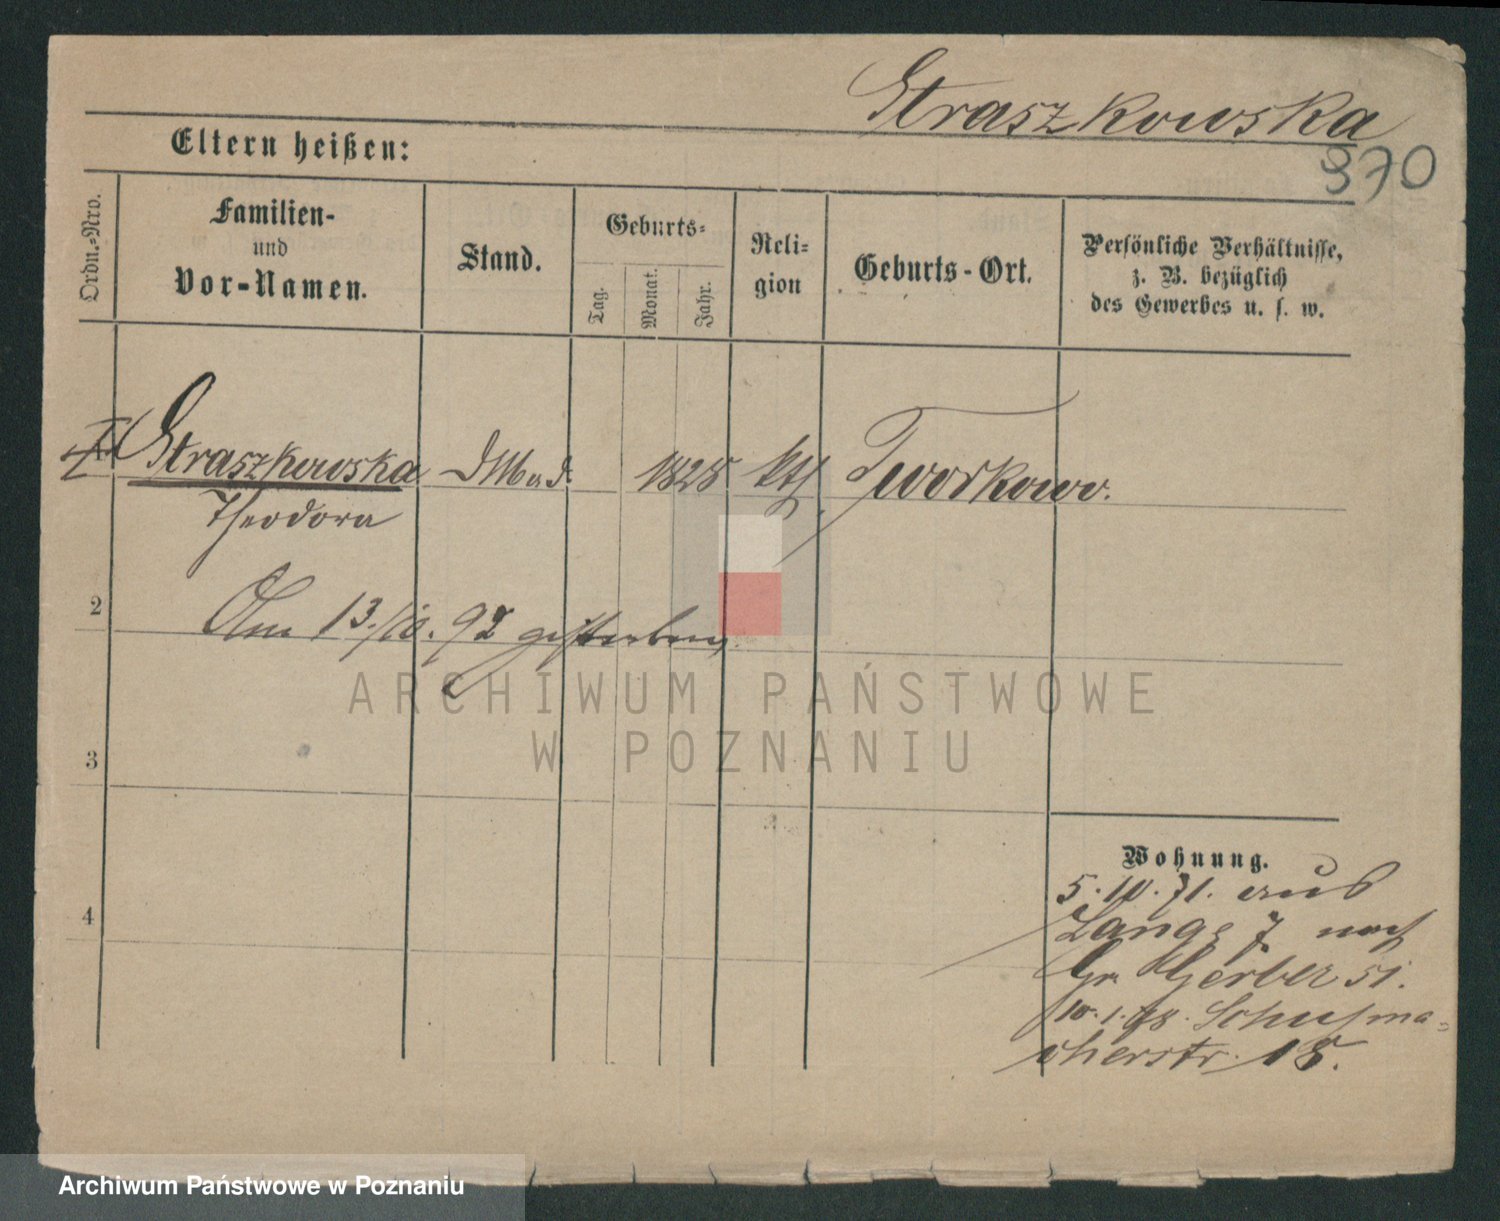 Straszkowska
370
Eltern heißen:
Ordn.=Nro.
Familien-
und
Vor-Namen.
Stand.
Geburts=
Tag.
Monat.
Jahr.
Reli=
gion
Geburts-Ort.
Persönliche Verhältnisse,
z. B. bezüglich
des Gewerbes u. s. w.
Straszkowska 1828 kth Tworkowo.
Theodora
2
Am 13./10. 92 gestorben
3
4
Wohnung.
5.10.71. aus
Lange 7 nach
Gr. Gerber 51.
10.1.78. Schuhma=
cherstr. 15.
ARCHIWUM PAŃSTWOWE
W POZNANIU
Archiwum Państwowe w Poznaniu